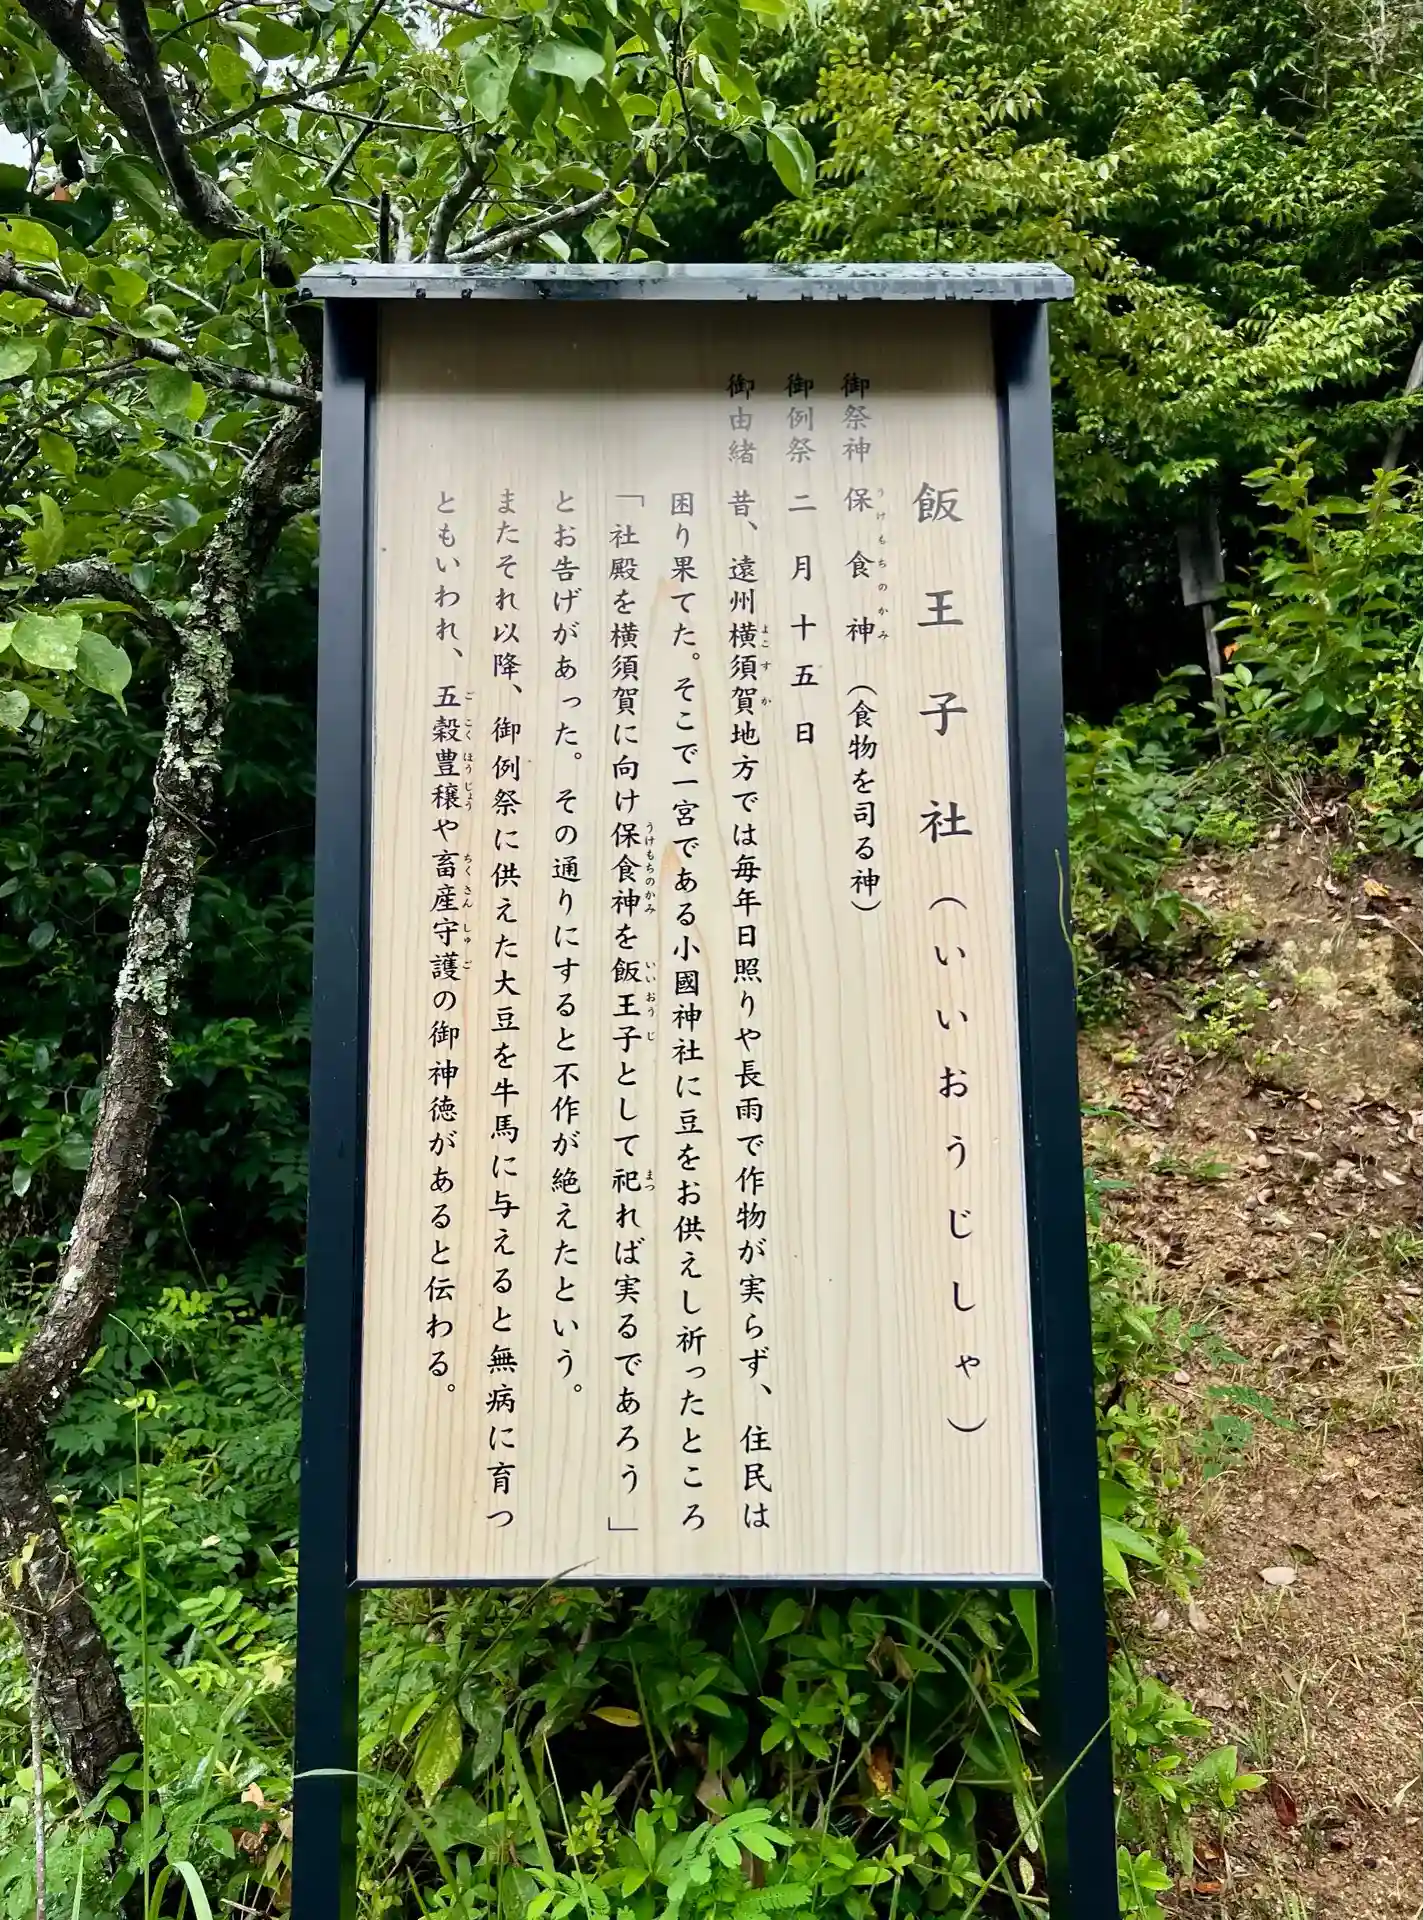 飯王子社（いいおうじしゃ）
御祭神 保食神（食物を司る神）
うけもちのかみ
御例祭 二月十五日
御由緒 昔、遠州横須賀地方では毎年日照りや長雨で作物が実らず、住民は
よこすか
困り果てた。そこで一宮である小國神社に豆をお供えし祈ったところ
「社殿を横須賀に向け保食神を飯王子として祀れば実るであろう」
うけもちのかみ いいおうじ まつ
とお告げがあった。その通りにすると不作が絶えたという。
またそれ以降、御例祭に供えた大豆を牛馬に与えると無病に育つ
ともいわれ、五穀豊穣や畜産守護の御神徳があると伝わる。
ごこくほうじょう ちくさんしゅご